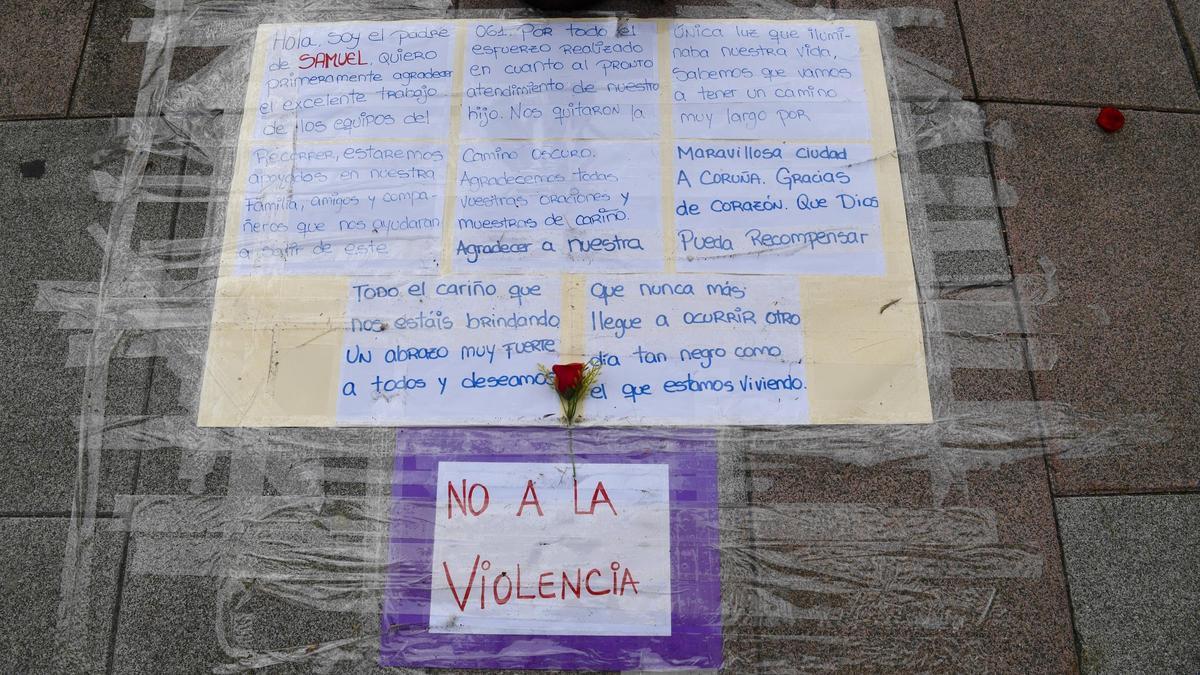 Hola, soy el padre
de SAMUEL. QUIERO
primeramente agradecer
el excelente trabajo
de los equipos del
061. Por todo el
esfuerzo realizado
en cuanto al pronto
atendimiento de nuestro
hijo. Nos quitaron la
única luz que ilumi-
naba nuestra vida,
Sabemos que vamos
a tener un camino
muy largo por
Recorrer, estaremos
apoyados en nuestra
familia, amigos y compa-
ñeros que nos ayudaran
a salir de este
Camino oscuro.
Agradecemos todas
vuestras oraciones y
muestras de cariño.
Agradecer a nuestra
Maravillosa ciudad
A CORUÑA. Gracias
de CORAZÓN. Que Dios
Pueda Recompensar
TODO el cariño que
nos estáis brindando
UN abrazo muy FUERTE
a todos y deseamos
Que nunca más
llegue a OCURRIR OTRO
día tan negro como
el que estamos Viviendo.
NO A LA
VIOLENCIA